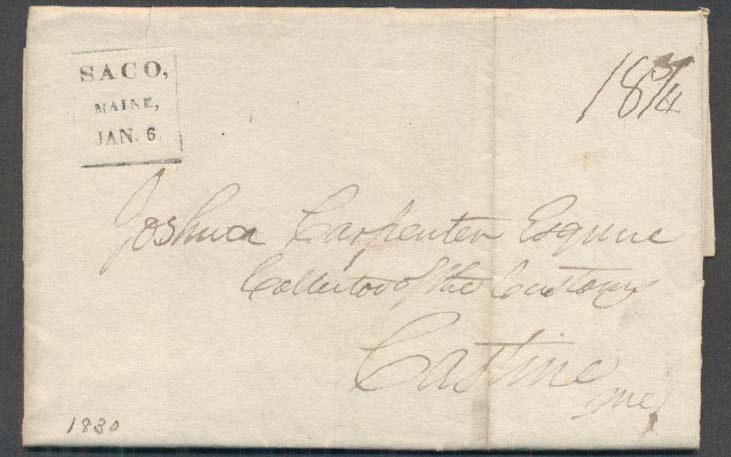 SACO,
MAINE,
JAN. 6
18 3/4
Joshua Carpenter Esquire
Collector of the Customs
Castine
Me
1830